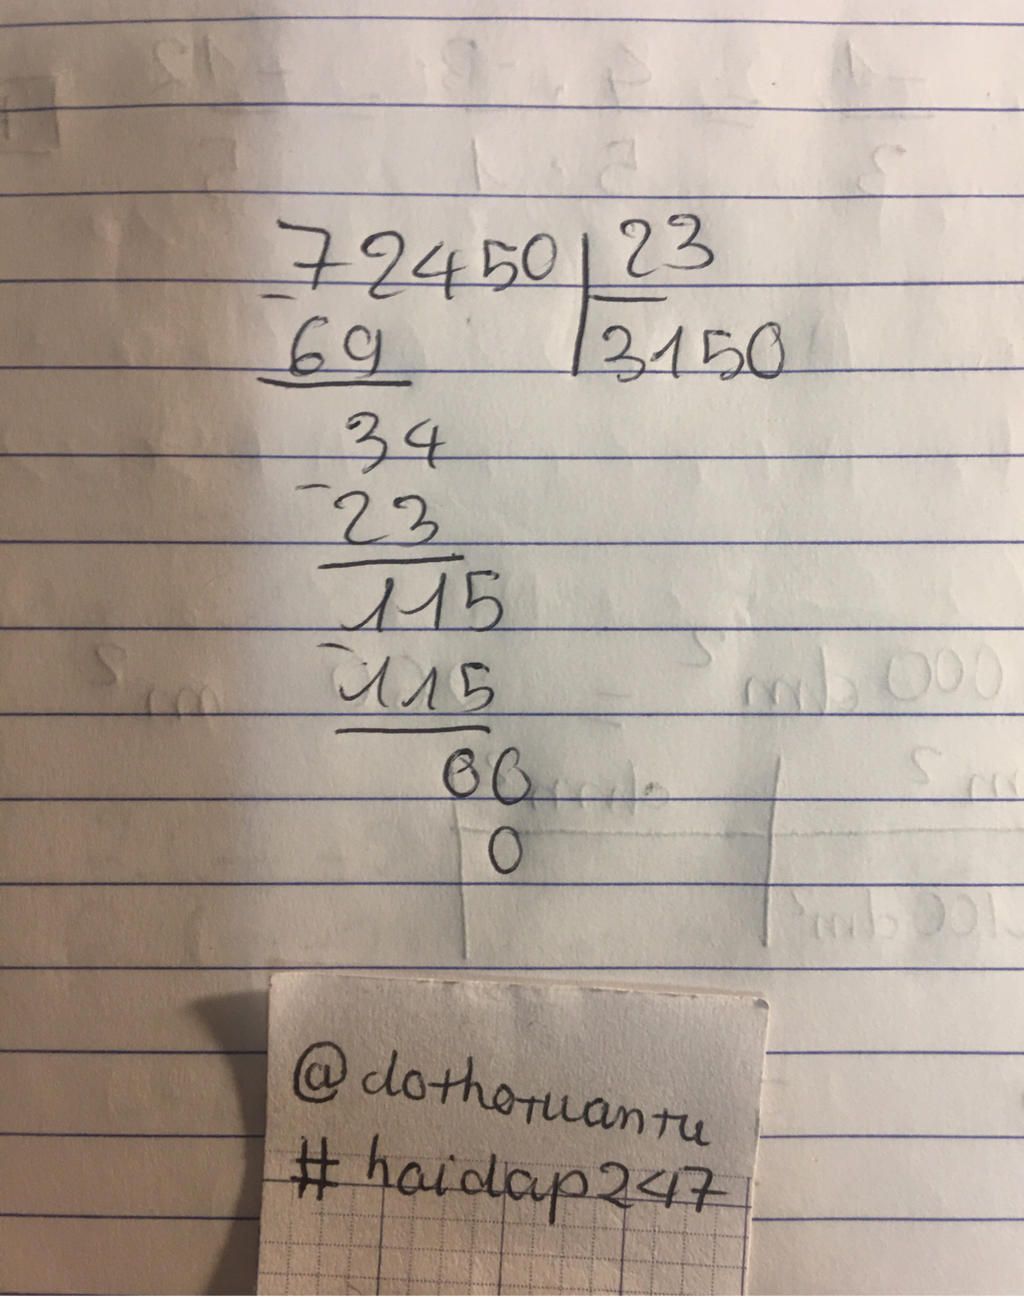 72450 23
- 69 3150
34
- 23
115
- 115
00
0
@dothotuantu
# haidap247